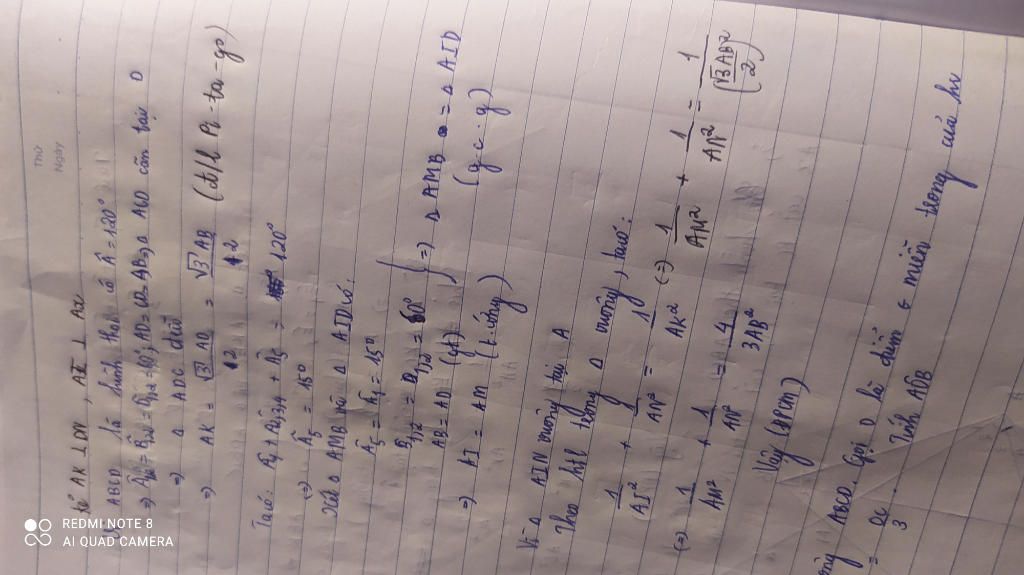 Thứ
Ngày
kẻ AK ⊥ DN, AI ⊥ Ax
ABCD là hình thoi có Â = 120°
=> = 60°, AD = DC = AB, Δ ABD cân tại
=> Δ ADC đều
=> AK = √3 AD / 2 = √3 AB / 2 (đ/l Pi-ta-go)
Ta có: + + = 120°
(=) Â₅ = 15°
Xét Δ AMB và Δ AID có:
Â₅ = Â₁ = 15°
B̂₁,₂ = D̂₁,₂ = 60°
AB = AD (gt) } => Δ AMB = Δ AID
(g.c.g)
=> AI = AM (t.ứng)
Vì Δ AIN vuông tại A
Theo htl trong Δ vuông, ta có:
1/AI² + 1/AN² = 1/AK² (=) 1/AM² + 1/AN² = 1/(√3AB/2)²
(=) 1/AM² + 1/AN² = 4/3AB²
Vậy (đpcm)
ABCD. Gọi O là điểm ∈ miền trong của hv
= OC/3. Tính AOB
REDMI NOTE 8
AI QUAD CAMERA